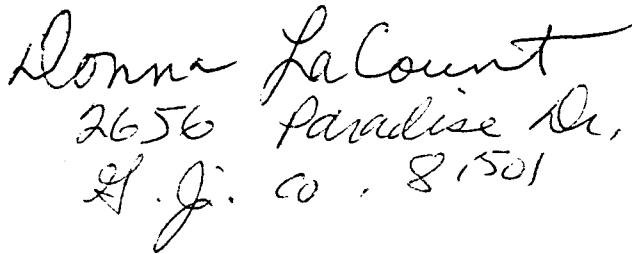 Donna LaCount
2656 Paradise Dr,
G.J. CO. 81501